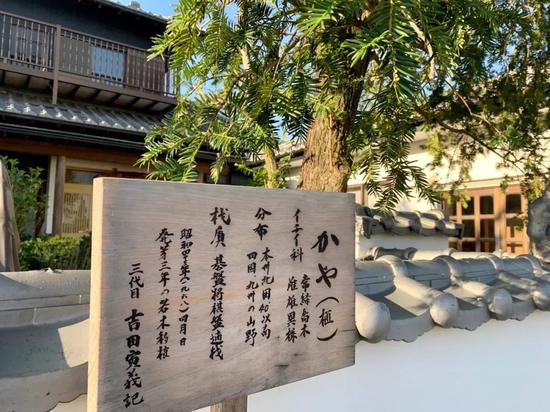 かや（榧）
イチイ科 常緑高木
雌雄異株
分布 本州 以南
四国 九州の山野
材質 碁盤将棋盤適材
昭和四三年（一九六八）四月日
発芽三年の若木移植
三代目 吉田寅義記